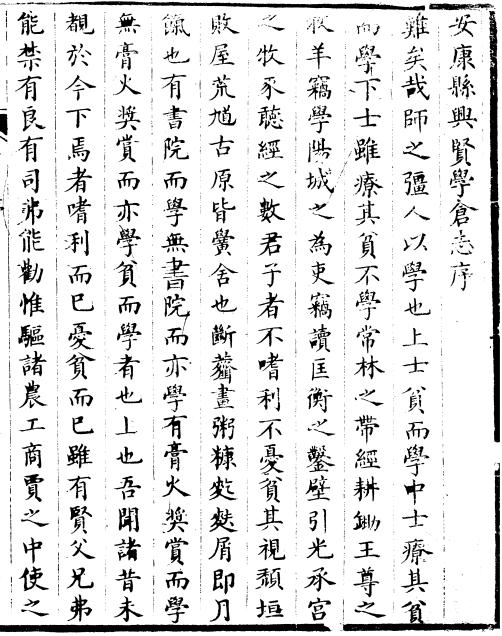 安康縣興賢學倉志序
難矣哉師之彊人以學也上士貧而學中士療其貧
而學下士雖療其貧不學常林之帶經耕鋤王尊之
牧羊竊學陽城之為吏竊讀匡衡之鑿壁引光承宮
之牧豕聽經之數君子者不嗜利不憂貧其視頹垣
敗屋荒馗古原皆黌舍也斷虀畫粥糠籺麩屑即月
餼也有書院而學無書院而亦學有膏火奬賞而學
無膏火奬賞而亦學貧而學者也上也吾聞諸昔未
覩於今下焉者嗜利而已憂貧而已雖有賢父兄弗
能禁有良有司弗能勸惟驅諸農工商賈之中使之